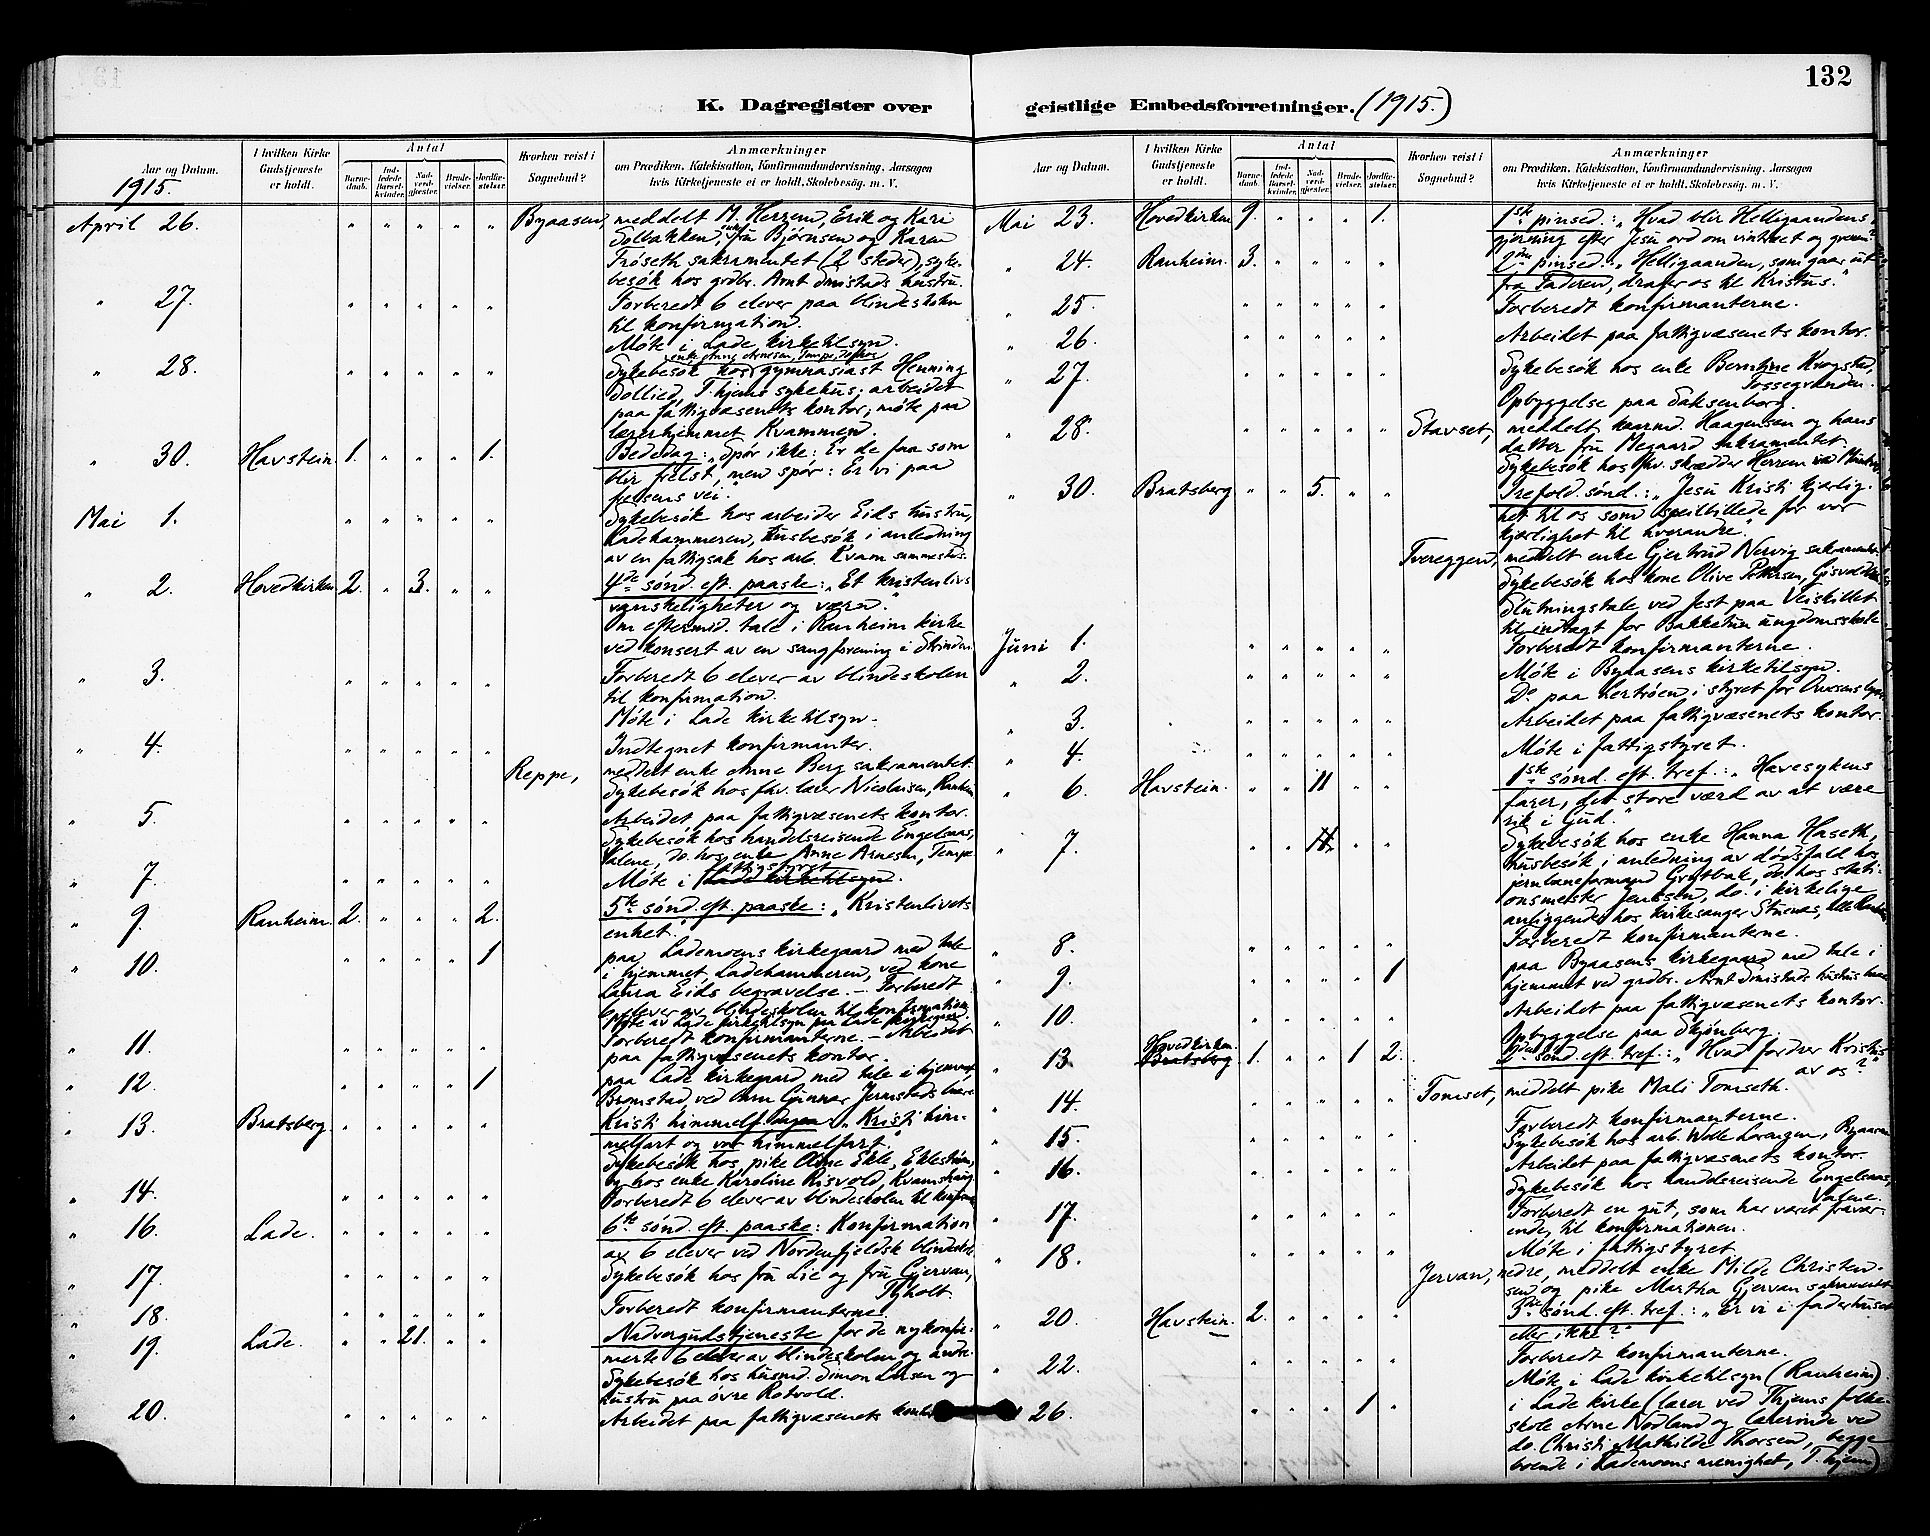 132
K. Dagregister over geistlige Embedsforretninger. (1915.)
Aar og Datum.
1915.
I hvilken Kirke Gudstjeneste er holdt.
Antal
Barnedaab.
Indledede Barselkvinder.
Nadverdgjester.
Brudevielser.
Jordfæstelser.
Hvorhen reist i Sognebud?
Anmærkninger
om Prædiken, Katekisation, Konfirmandundervisning, Aarsagen
hvis Kirketjeneste ei er holdt, Skolebesøg. m. V.
April 26. " " " " " Byaasen, meddelt M. Herrem, Erik og Kari
Solbakken, enke fru Bjørnsen og Karen
Trøseth sakramentet (2 steder), syke-
besøk hos grdbr. Arnt Smistads hustru.
" 27. " " " " " Forberedt 6 elever paa blindeskolen
til konfirmation.
Møte i Lade kirketilsyn.
" 28. " " " " " Sykebesøk hos gymnasiast Henning
Sollied, T.hjems sykehus; arbeidet
paa fattigvæsenets kontor; møte paa
lærerhjemmet Kvammen.
" 30. Havstein 1. " " " 1. Bededag: "Spør ikke: Er de faa som
blir frelst, men spør: Er vi paa
frelsens vei."
Mai 1. " " " " " Sykebesøk hos arbeider Eids hustru,
Ladehammeren, husbesøk i anledning
av en fattigsak hos arb. Kvam sammesteds.
" 2. Hovedkirken 2. " 3. " " 4de sønd. eft. paaske: "Et kristenlivs
vanskeligheter og værn."
Om eftermid. tale i Ranheim kirke
ved konsert av en sangforening i Strinden.
" 3. " " " " " Forberedt 6 elever av blindeskolen
til konfirmation.
Møte i Lade kirketilsyn.
" 4. " " " " " Indtegnet konfirmanter.
Reppe, meddelt enke Anne Berg sakramentet.
Sykebesøk hos fhv. lærer Nicolaisen, Ranheim
" 5. " " " " " Arbeidet paa fattigvæsenets kontor.
Sykebesøk hos handelsreisende Engelsaas,
Valene, do. hos enke Anne Arnesen, Tempe
" 7. " " " " " Møte i fattigstyret Lade kirketilsyn.
" 9. Ranheim. 2. " " " 2. 5te sønd. eft. paaske: "Kristenlivets
enhet."
" 10. " " " " 1 paa Lademoens kirkegaard med tale
i hjemmet, Ladehammeren, ved kone
Laura Eids begravelse. – Forberedt
6 elever av blindeskolen til konfirmation.
Møte av Lade kirketilsyn paa Lade kirkegaard
" 11. " " " " " Forberedt konfirmanterne. – Arbeidet
paa fattigvæsenets kontor.
" 12. " " " " 1 paa Lade kirkegaard med tale i hjemmet,
Bromstad ved barn Gunnar
" 13. Bratsberg. " " " " " Kristi himmelf. dagen: "Kristi him-
melfart og vor himmelfart."
Sykebesøk hos pike Oline Ekle, Eklestrøen,
og hos enke Karoline Risvold,
" 14. " " " " " Forberedt 6 elever av blindeskolen til konfirm.
" 16. Lade. " " " " " 6te sønd. eft. paaske: Konfirmation
av 6 elever ved Nordenfjeldsk blindeskole.
" 17. " " " " " Sykebesøk hos fru Lie og fru Gjervan,
Tyholt.
" 18. " " " " " Forberedt konfirmanterne.
" 19. Lade. " " 21. " " Nadvergudstjeneste for de nykonfir-
merte 6 elever av blindeskolen og andre.
Sykebesøk hos husmd. Simon Larsen og
hustru paa øvre Rotvold.
" 20. " " " " " Arbeidet paa fattigvæsenets kontor
Aar og Datum.
I hvilken Kirke Gudstjeneste er holdt.
Antal
Barnedaab.
Indledede Barselkvinder.
Nadverdgjester.
Brudevielser.
Jordfæstelser.
Hvorhen reist i Sognebud?
Anmærkninger
om Prædiken, Katekisation, Konfirmandundervisning, Aarsagen
hvis Kirketjeneste ei er holdt, Skolebesøg. m. V.
Mai 23. Hovedkirken 9. " " " 1. 1ste pinsed.: "Hvad blir Helligaandens
gjerning efter Jesu ord om vintræet og grenene?"
" 24. Ranheim. 3. " " " " 2den pinsed.: "Helligaanden, som gaar ut
fra Faderen, drager os til Kristus."
" 25. " " " " " Forberedt konfirmanterne.
" 26. " " " " " Arbeidet paa fattigvæsenets kontor.
" 27. " " " " " Sykebesøk hos enke Berntine Krogstad,
Fossegrenden.
Opbyggelse paa Saksenborg.
" 28. " " " " " Stavset, meddelt kaarmd. Haagensen og hans
datter fru Megaard sakramentet.
Sykebesøk hos fhv. skrædder Herrem
" 30. Bratsberg " " 5. " " Trefold. sønd.: "Jesu Kristi kjærlig-
het til os som speilbillede for vor
kjærlighet til hverandre."
Tvereggen, meddelt enke Gjertrud Nervig sakramentet.
Sykebesøk hos kone Olive Pettersen,
Slutningstale ved fest paa Veiskillet
til indtægt for Bakketun ungdomsskole
Juni 1. " " " " " Forberedt konfirmanterne.
" 2. " " " " " Møte i Byaasens kirketilsyn.
Do. paa Lertrøen, i styret for
" 3. " " " " " Arbeidet paa fattigvæsenets kontor.
" 4. " " " " " Møte i fattigstyret.
" 6. Havstein. " " 11 " " 1ste sønd. eft. tref.: "Havesykens
farer, det store værd av at være
rik i Gud."
" 7. " " 11. " " Sykebesøk hos enke Hanna Haseth,
husbesøk i anledning av dødsfald hos
jernbaneformand Grøtbak, do. hos stati-
onsmester Jenssen, do. i kirkelige
anliggender hos kirkesanger
" 8. " " " " " Forberedt konfirmanterne.
" 9. " " " " 1 paa Byaasens kirkegaard med tale i
hjemmet ved grdbr. Arnt Smistads hustrus
" 10. " " " " " Arbeidet paa fattigvæsenets kontor.
Opbyggelse paa Skjønberg.
" 13. Hovedkirken. Bratsberg 1. " " 1 2. 2den sønd. eft. tref.: "Hvad fordrer Kristus
av os?"
" 14. " " " " " Tomset, meddelt pike Mali Tomseth.
Forberedt konfirmanterne.
" 15. " " " " " Sykebesøk hos arb. Lorangen, Byaasen
" 16. " " " " " Arbeidet paa fattigvæsenets kontor.
Sykebesøk hos handelsreisende Engelsaas,
Valene.
" 17. " " " " " Forberedt en gut, som har været fravær-
ende, til konfirmationen.
" 18. " " " " " Møte i fattigstyret
Jervan, nedre, meddelt enke Milde Christen-
sen og pike Martha Gjervan sakramentet
" 20. Havstein. 2. " " " " 3die sønd. eft. tref.: "Er vi i faderhuset
eller ikke?"
" 22. " " " " " Forberedt konfirmanterne.
Møte i Lade kirketilsyn (Ranheim)
" 26. " " " 1 " i Lade kirke (lærer ved T.hjems folke-
skole Arne Nodland og lærerinde ved
do. Christi Mathilde Thorsen, begge
boende i Lademoens menighet, T.hjem)